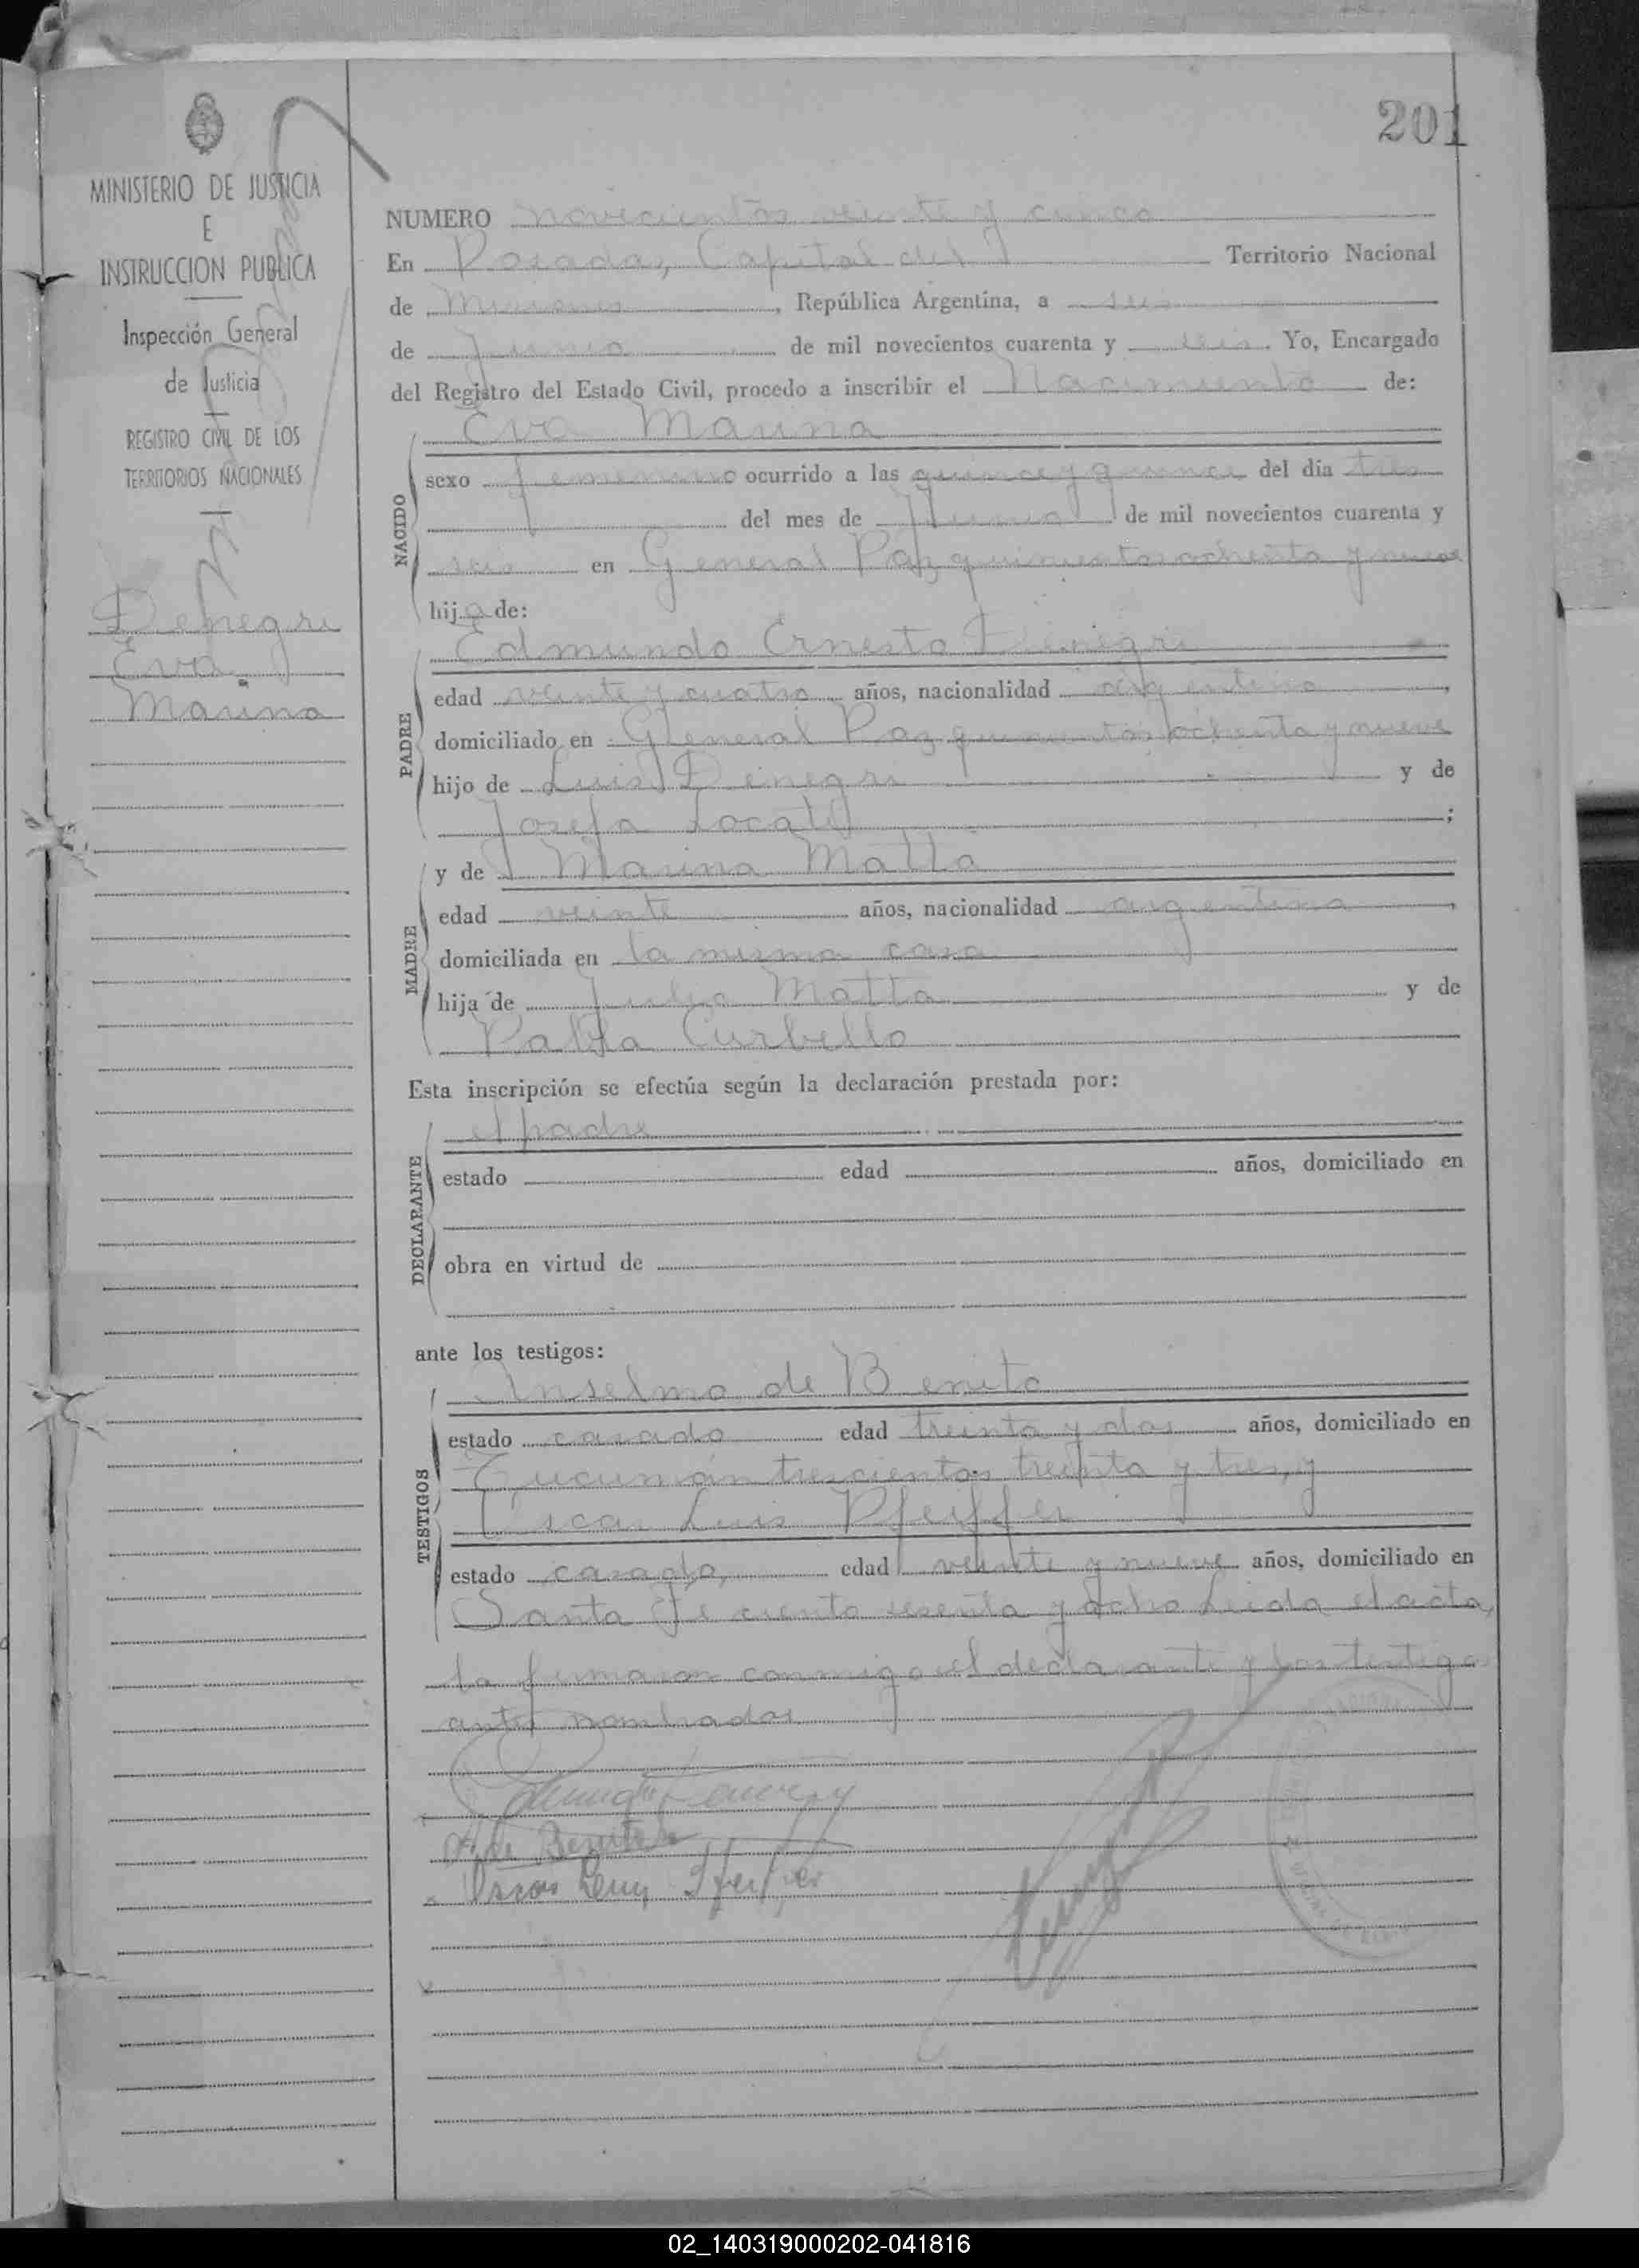 201
MINISTERIO DE JUSTICIA
E
INSTRUCCION PUBLICA
Inspección General
de Justicia
REGISTRO CIVIL DE LOS
TERRITORIOS NACIONALES
Denegri
Eva
Marina
NUMERO novecientos veinte y cinco
En Posadas, Capital del Territorio Nacional
de Misiones, República Argentina, a seis
de Junio de mil novecientos cuarenta y seis. Yo, Encargado
del Registro del Estado Civil, procedo a inscribir el Nacimiento de:
NACIDO
Eva Marina
sexo femenino ocurrido a las quince y quince del día tres
del mes de Junio de mil novecientos cuarenta y
seis en General Paz quinientos ochenta y nueve
hija de:
PADRE
Edmundo Ernesto Denegri
edad veinte y cuatro años, nacionalidad argentina,
domiciliado en General Paz quinientos ochenta y nueve
hijo de Luis Denegri y de
Josefa Locati;
MADRE
y de Marina Matta
edad veinte años, nacionalidad argentina,
domiciliada en la misma casa
hija de Julio Matta y de
Pabla Curbello
Esta inscripción se efectúa según la declaración prestada por:
DECLARANTE
el padre
estado edad años, domiciliado en
obra en virtud de
ante los testigos:
TESTIGOS
Anselmo de Benito
estado casado edad treinta y dos años, domiciliado en
Tucumán trescientos treinta y tres, y
Oscar Luis Pfeiffer
estado casado, edad veinte y nueve años, domiciliado en
Santa Fe ciento sesenta y ocho Leída el acta,
la firmaron conmigo el declarante y los testigos
antes nombrados
A. de Benito
Oscar Luis Pfeiffer
02_140319000202-041816